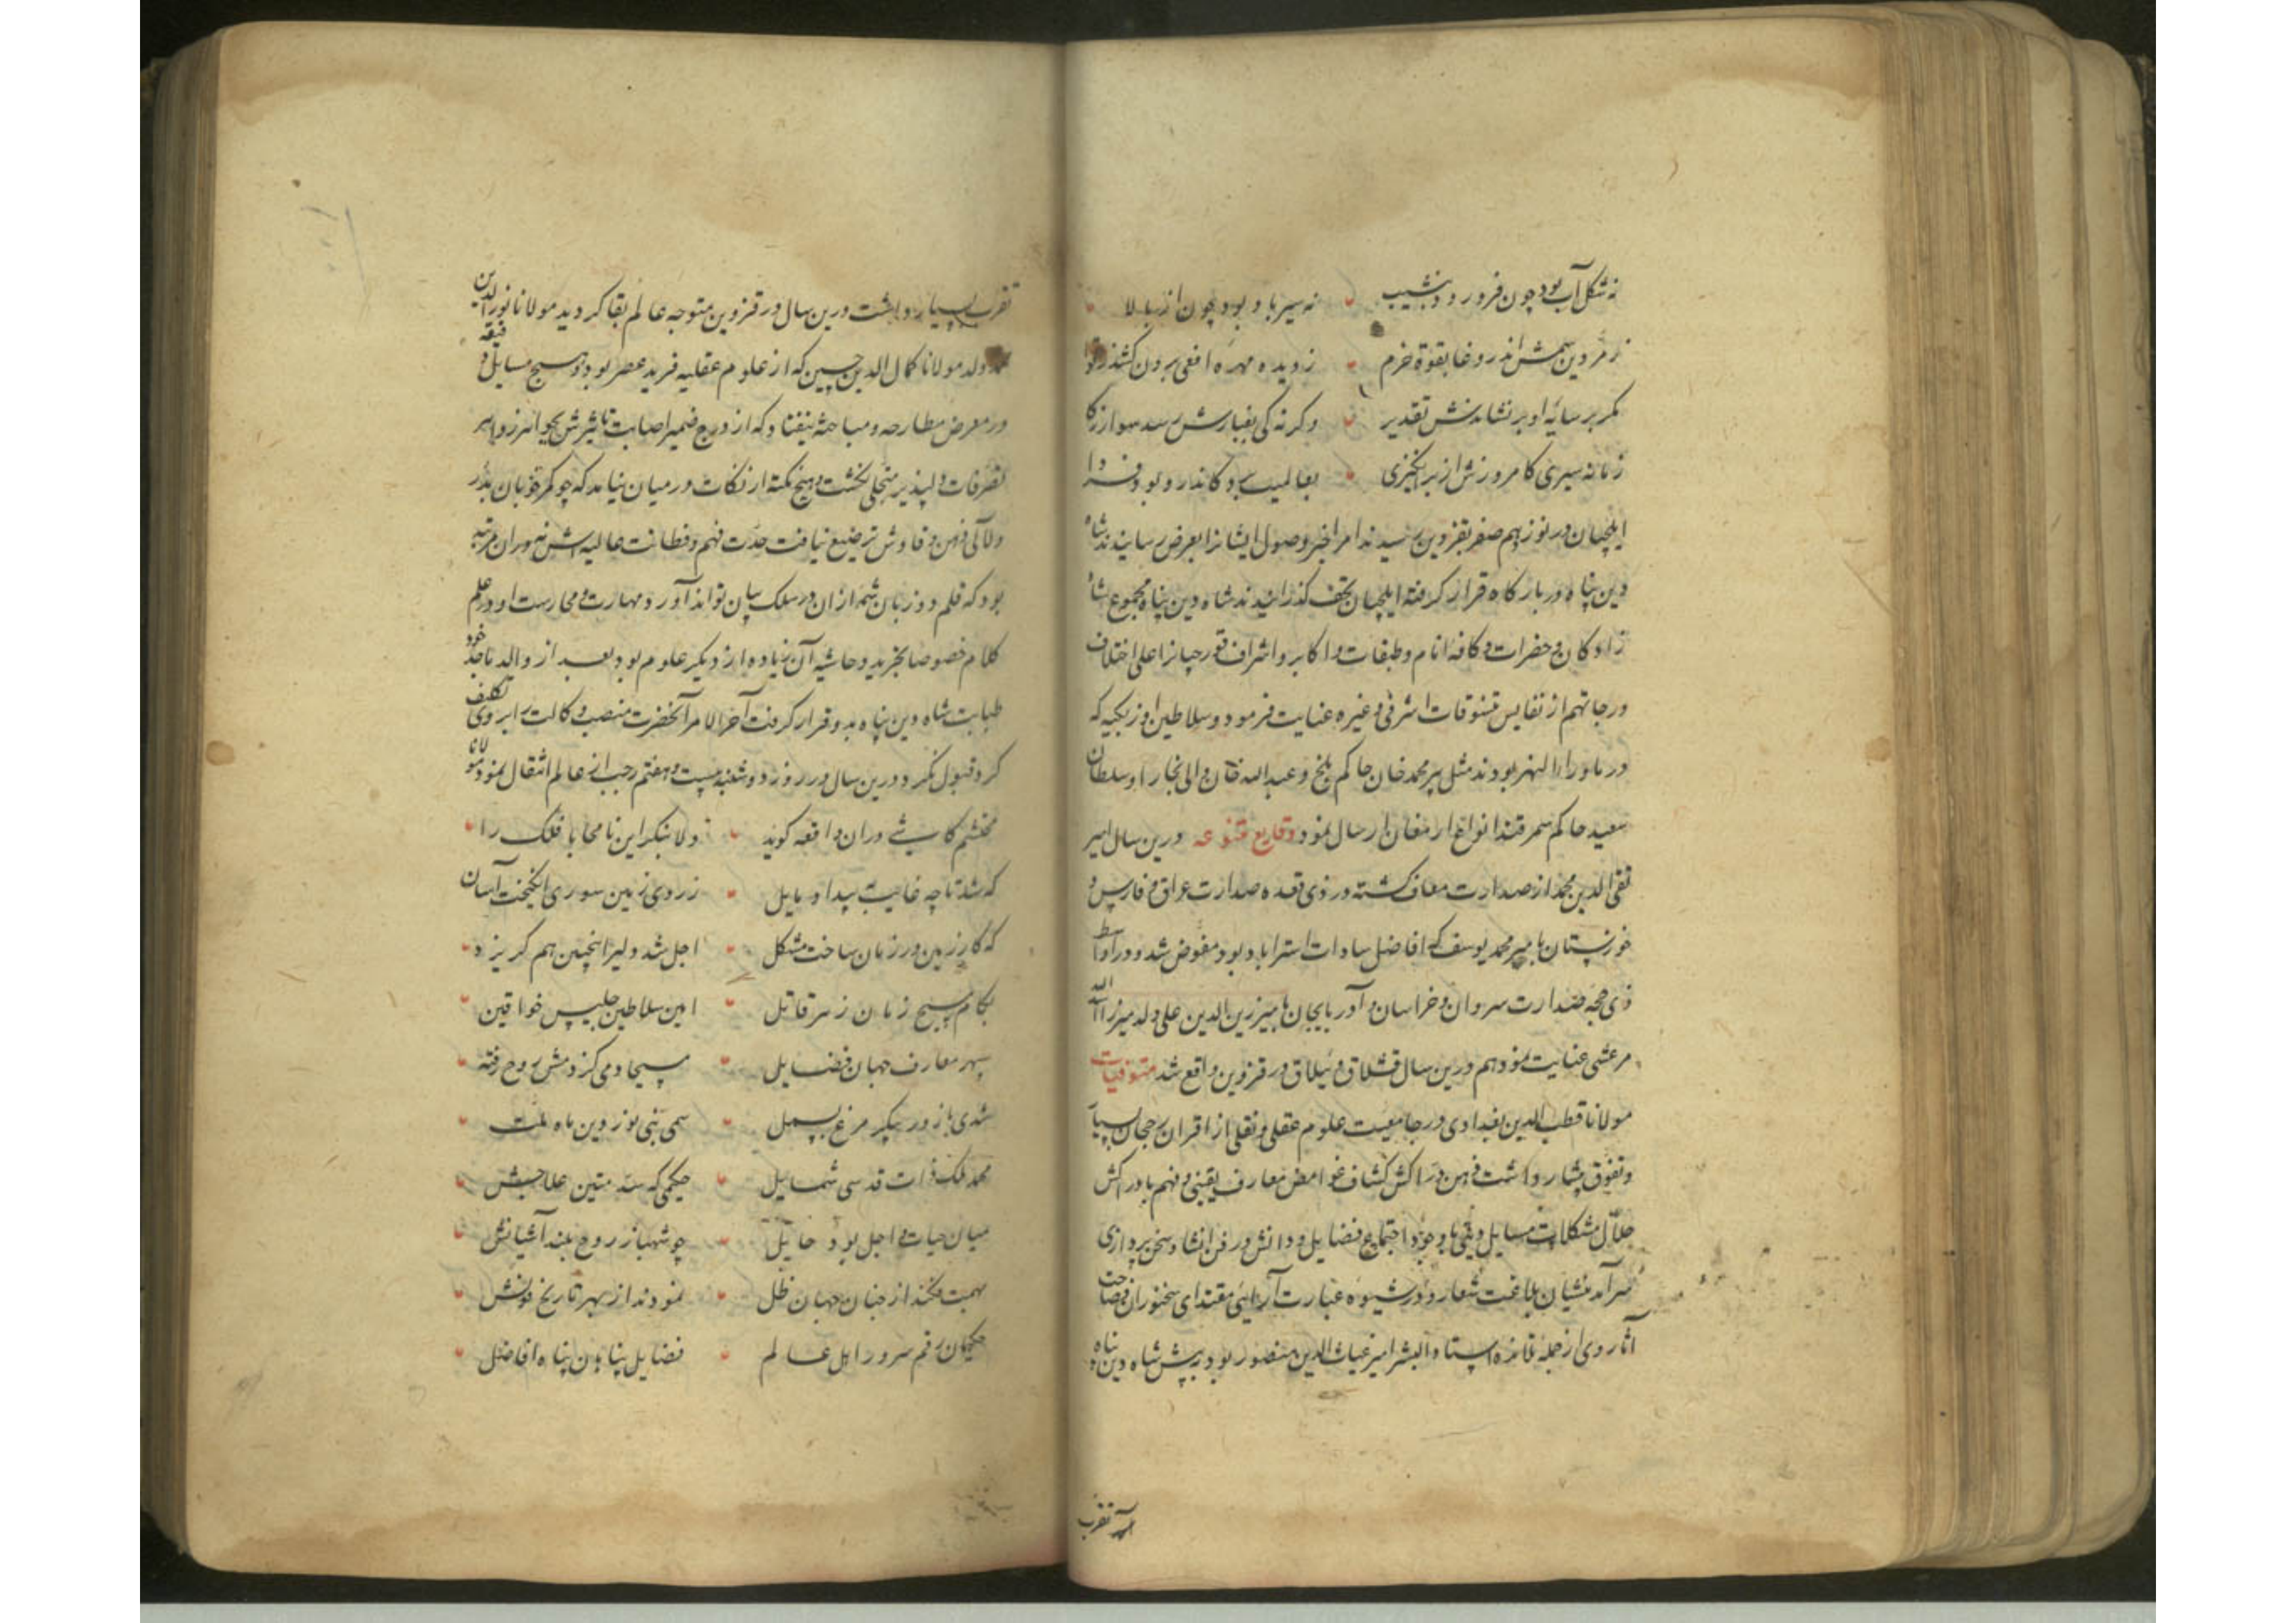 نه شکل آب بود چون فرو رود به نشیب نه سیر باد بود چون از بالا
زمردین سمش اندر وغا بقوة خرم ز دیده مهره افعی برون کشد
مکر بر سایهٔ او بر نشاندش تقدیر وکرنه کی بغبارش رسد سوار
زمانه سیری کامروزش ار برانکیزی بعالمیت برد کاندرو بود فردا
ایلچیان در نوزدهم صفر بقزوین رسیدند امرا خبر وصول ایشانرا بعرض رسانیدند شاه
دین پناه در بارکاه قرار کرفته ایلچیان تحف کذرانیدند شاه دین پناه مجموع شاه
زادکان و حضرات و کافه انام و طبقات و اکابر و اشراف قورچیانرا علی اختلاف
درجاتهم از نفایس تنسوقات اشرفی و غیره عنایت فرمود و سلاطین اوزبکیه که
در ماوراء النهر بودند مثل پیر محمد خان حاکم بلخ و عبد الله خان والی بخارا و سلطان
سعید حاکم سمرقند انواع ارمغان ارسال نمود وقایع متنوعه درین سال امیر
تقی الدین محمد از صدارت معاف کشته در ذی قعده صدارت عراق و فارس و
خوزستان بامیر محمد یوسف که افاضل سادات استراباد بود مفوض شد و در اواسط
ذی حجه صدارت شروان و خراسان و آذربایجان بامیر زین الدین علی ولد میرزا اسد الله
مرعشی عنایت نمود هم درین سال قشلاق و ییلاق در قزوین واقع شد متوفیات
مولانا قطب الدین بغدادی در جامعیت علوم عقلی و نقلی از اقران رجحان بسیار
و تفوق بیشمار داشت ذهن دراکش کشاف غوامض معارف یقینی و فهم با ادراکش
حلال مشکلات مسایل دینی با وجود اجتماع فضایل و دانش در فن انشا و سخن پردازی
سرآمد منشیان بلاغت شعار و در شیوه عبارت آرایی مقتدای سخنوران فصاحت
آثار وی از جمله تلامذه استاد البشر امیر غیاث الدین منصور بود در پیش شاه دین پناه
تقرب
تقرب بسیار داشت درین سال در قزوین متوجه عالم بقا کردید مولانا نور الدین
محمد ولد مولانا کمال الدین حسین که از علوم عقلیه فرید عصر بود و هیچ مسایل دقیقه
در معرض مطارحه و مباحثه نیفتاد که از درج ضمیر اصابت تاثیرش بجواهر زواهر
تصرفات دلپذیر متجلی نکشت و هیچ نکته از نکات در میان نیامد که چو کمر خوبان بدرر
و لآلی ذهن وقادش ترصیع نیافت حدت فهم و فطانت عالیه اش نه در ان مرتبه
بود که قلم دو زبان شمه از ان در سلک بیان تواند آورد و مهارت و ممارست او در علم
کلام خصوصا تجرید و حاشیه آن زیاده از دیکر علوم بود بعد از والد ماجد خود
طبابت شاه دین پناه بدو قرار کرفت آخر الامر آنحضرت منصب وکالت را بر وی تکلیف
کرد قبول نکرد و درین سال در روز دوشنبه بیست و هفتم رجب از عالم انتقال نمود مولانا
محتشم کاشی در ان واقعه کوید دلا بنکر این نا محابا فلک را
که شد تا چه غایت به بیداد مایل ز روی زمین سوری انکیخت آسان
که کار زمین در زمان ساخت مشکل اجل شد دلیر اینچنین هم که ریزد
بکام مسیح زمان زهر قاتل امین سلاطین جلیس خواقین
سپهر معارف جهان فضایل مسیحا دمی کز دمش روح رفته
شدی باز در پیکر مرغ بسمل سمی نبی نور دین ماه ملت
محمد ملک ذات قدسی شمایل حکیمی که سد متین علاجش
میان حیات و اجل بود حایل چو شهباز روح بلند آشیانش
بهمت فکند از جنان جهان ظل نمودند از بهر تاریخ فوتش
حکیمان رقم سرور اهل عالم فضایل پناهان پناه افاضل